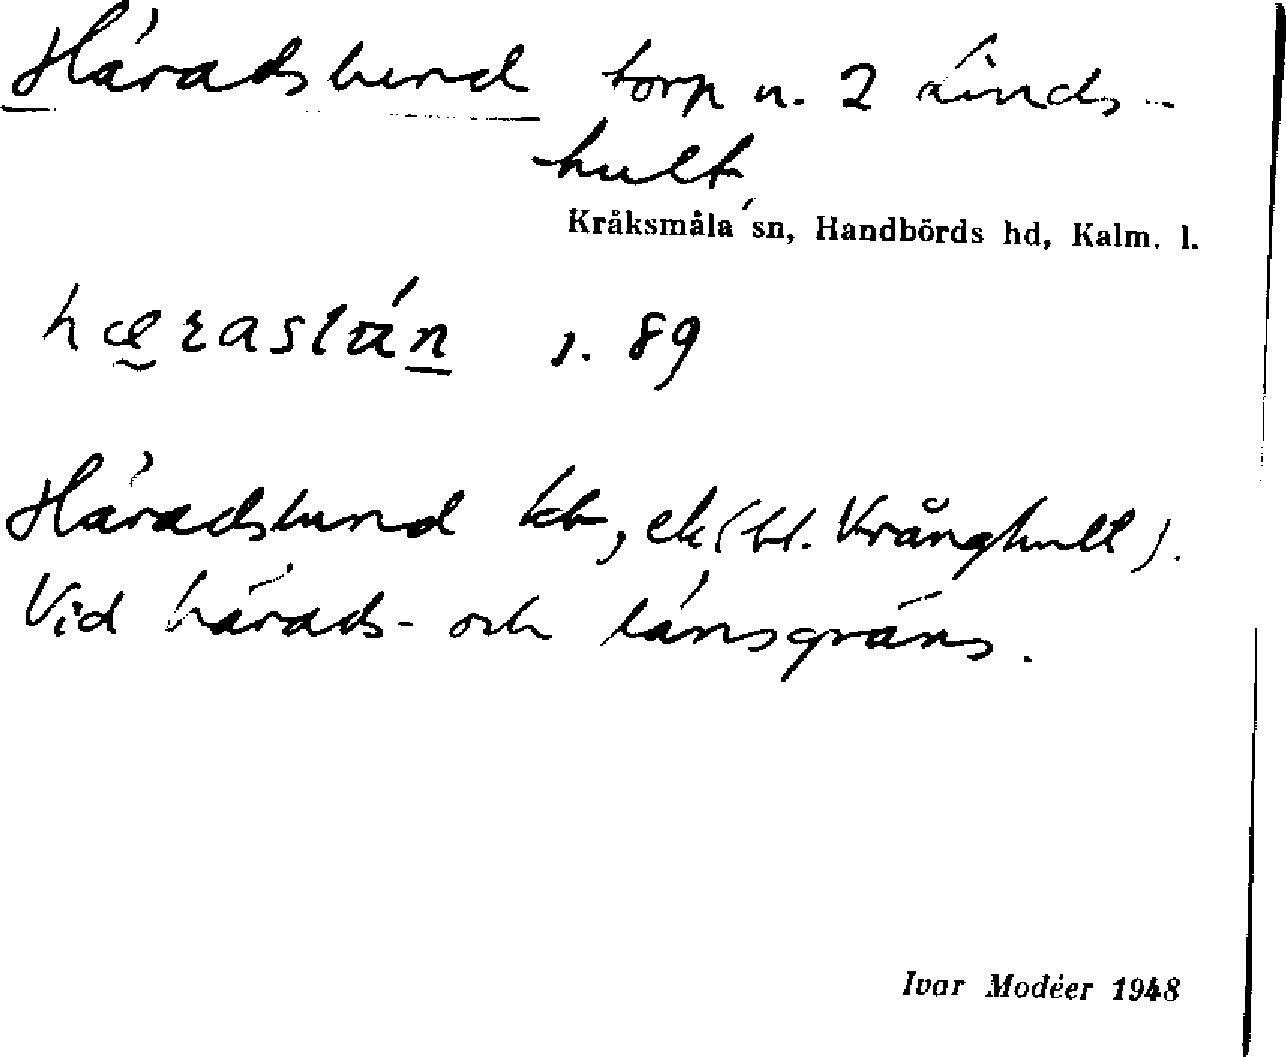 Häradslund torp u. 2 Linds-
hult,
Kråksmåla sn, Handbörds hd, Kalm. l.
hæraslún s. 89
Häradslund kb, ek (bl. Krånghult).
Vid härads- och länsgräns.
Ivar Modéer 1948